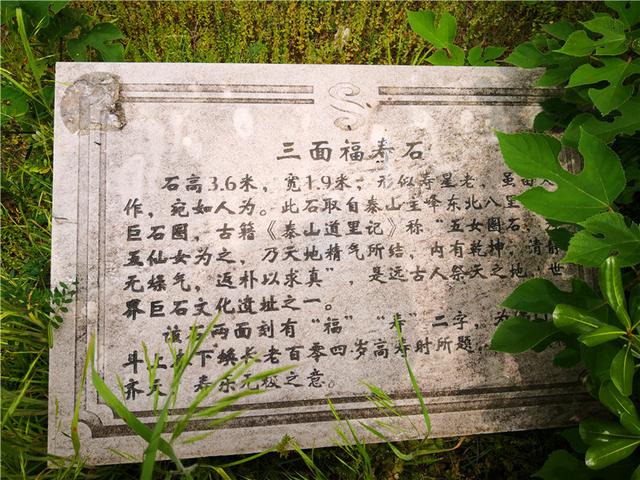 三面福寿石
石高3.6米，宽1.9米，形似寿星老，虽由
作，宛如人为。此石取自泰山主峰东北八里
巨石圈，古籍《泰山道里记》称“五女圈石，
五仙女为之，乃天地精气所结，内有乾坤，清静
无燥气，返朴以求真”，是远古人祭天之地，世
界巨石文化遗址之一。
该石两面刻有“福”“寿”二字，为
斗上 下 长老百零四岁高寿时所题，
齐天 寿乐无极之意。